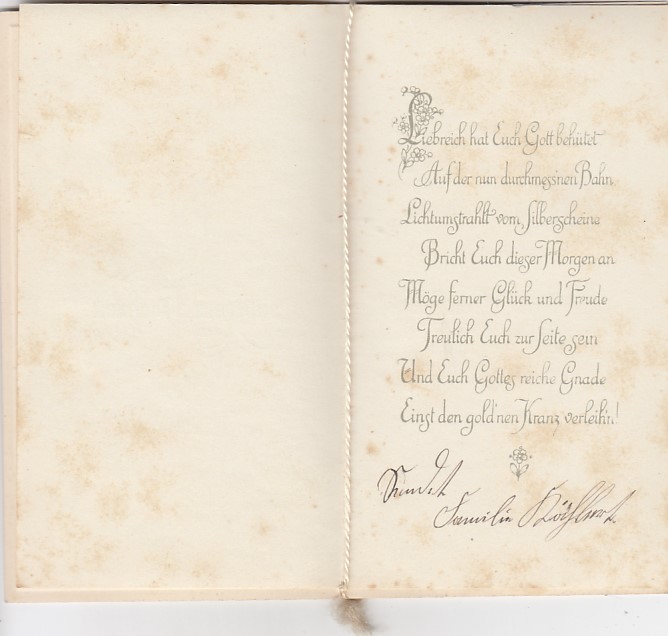 Liebreich hat Euch Gott behütet
Auf der nun durchmess'nen Bahn,
Lichtumstrahlt vom Silberscheine
Bricht Euch dieser Morgen an
Möge ferner Glück und Freude
Treulich Euch zur Seite sein
Und Euch Gottes reiche Gnade
Einst den gold'nen Kranz verleih'n!
Sendet
Familie